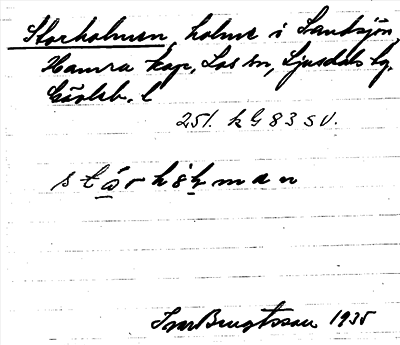 Storholmen, holme i Sandsjön,
Hamra kap, Los sn, Ljusdals tg,
Gävleb. l
251. k G 83 SV.
stọ́rhọ́ḷmən
Ivar Bengtsson 1935